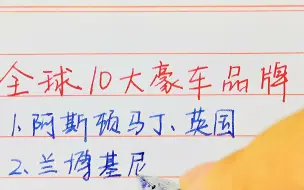 全球10大豪车品牌
1、阿斯顿马丁、英国
2、兰博基尼